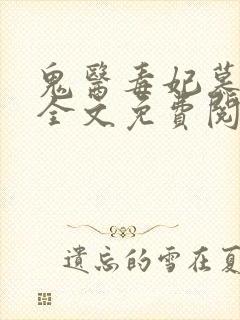 鬼醫毒妃慕
全文免費閱
遺忘的雪在夏